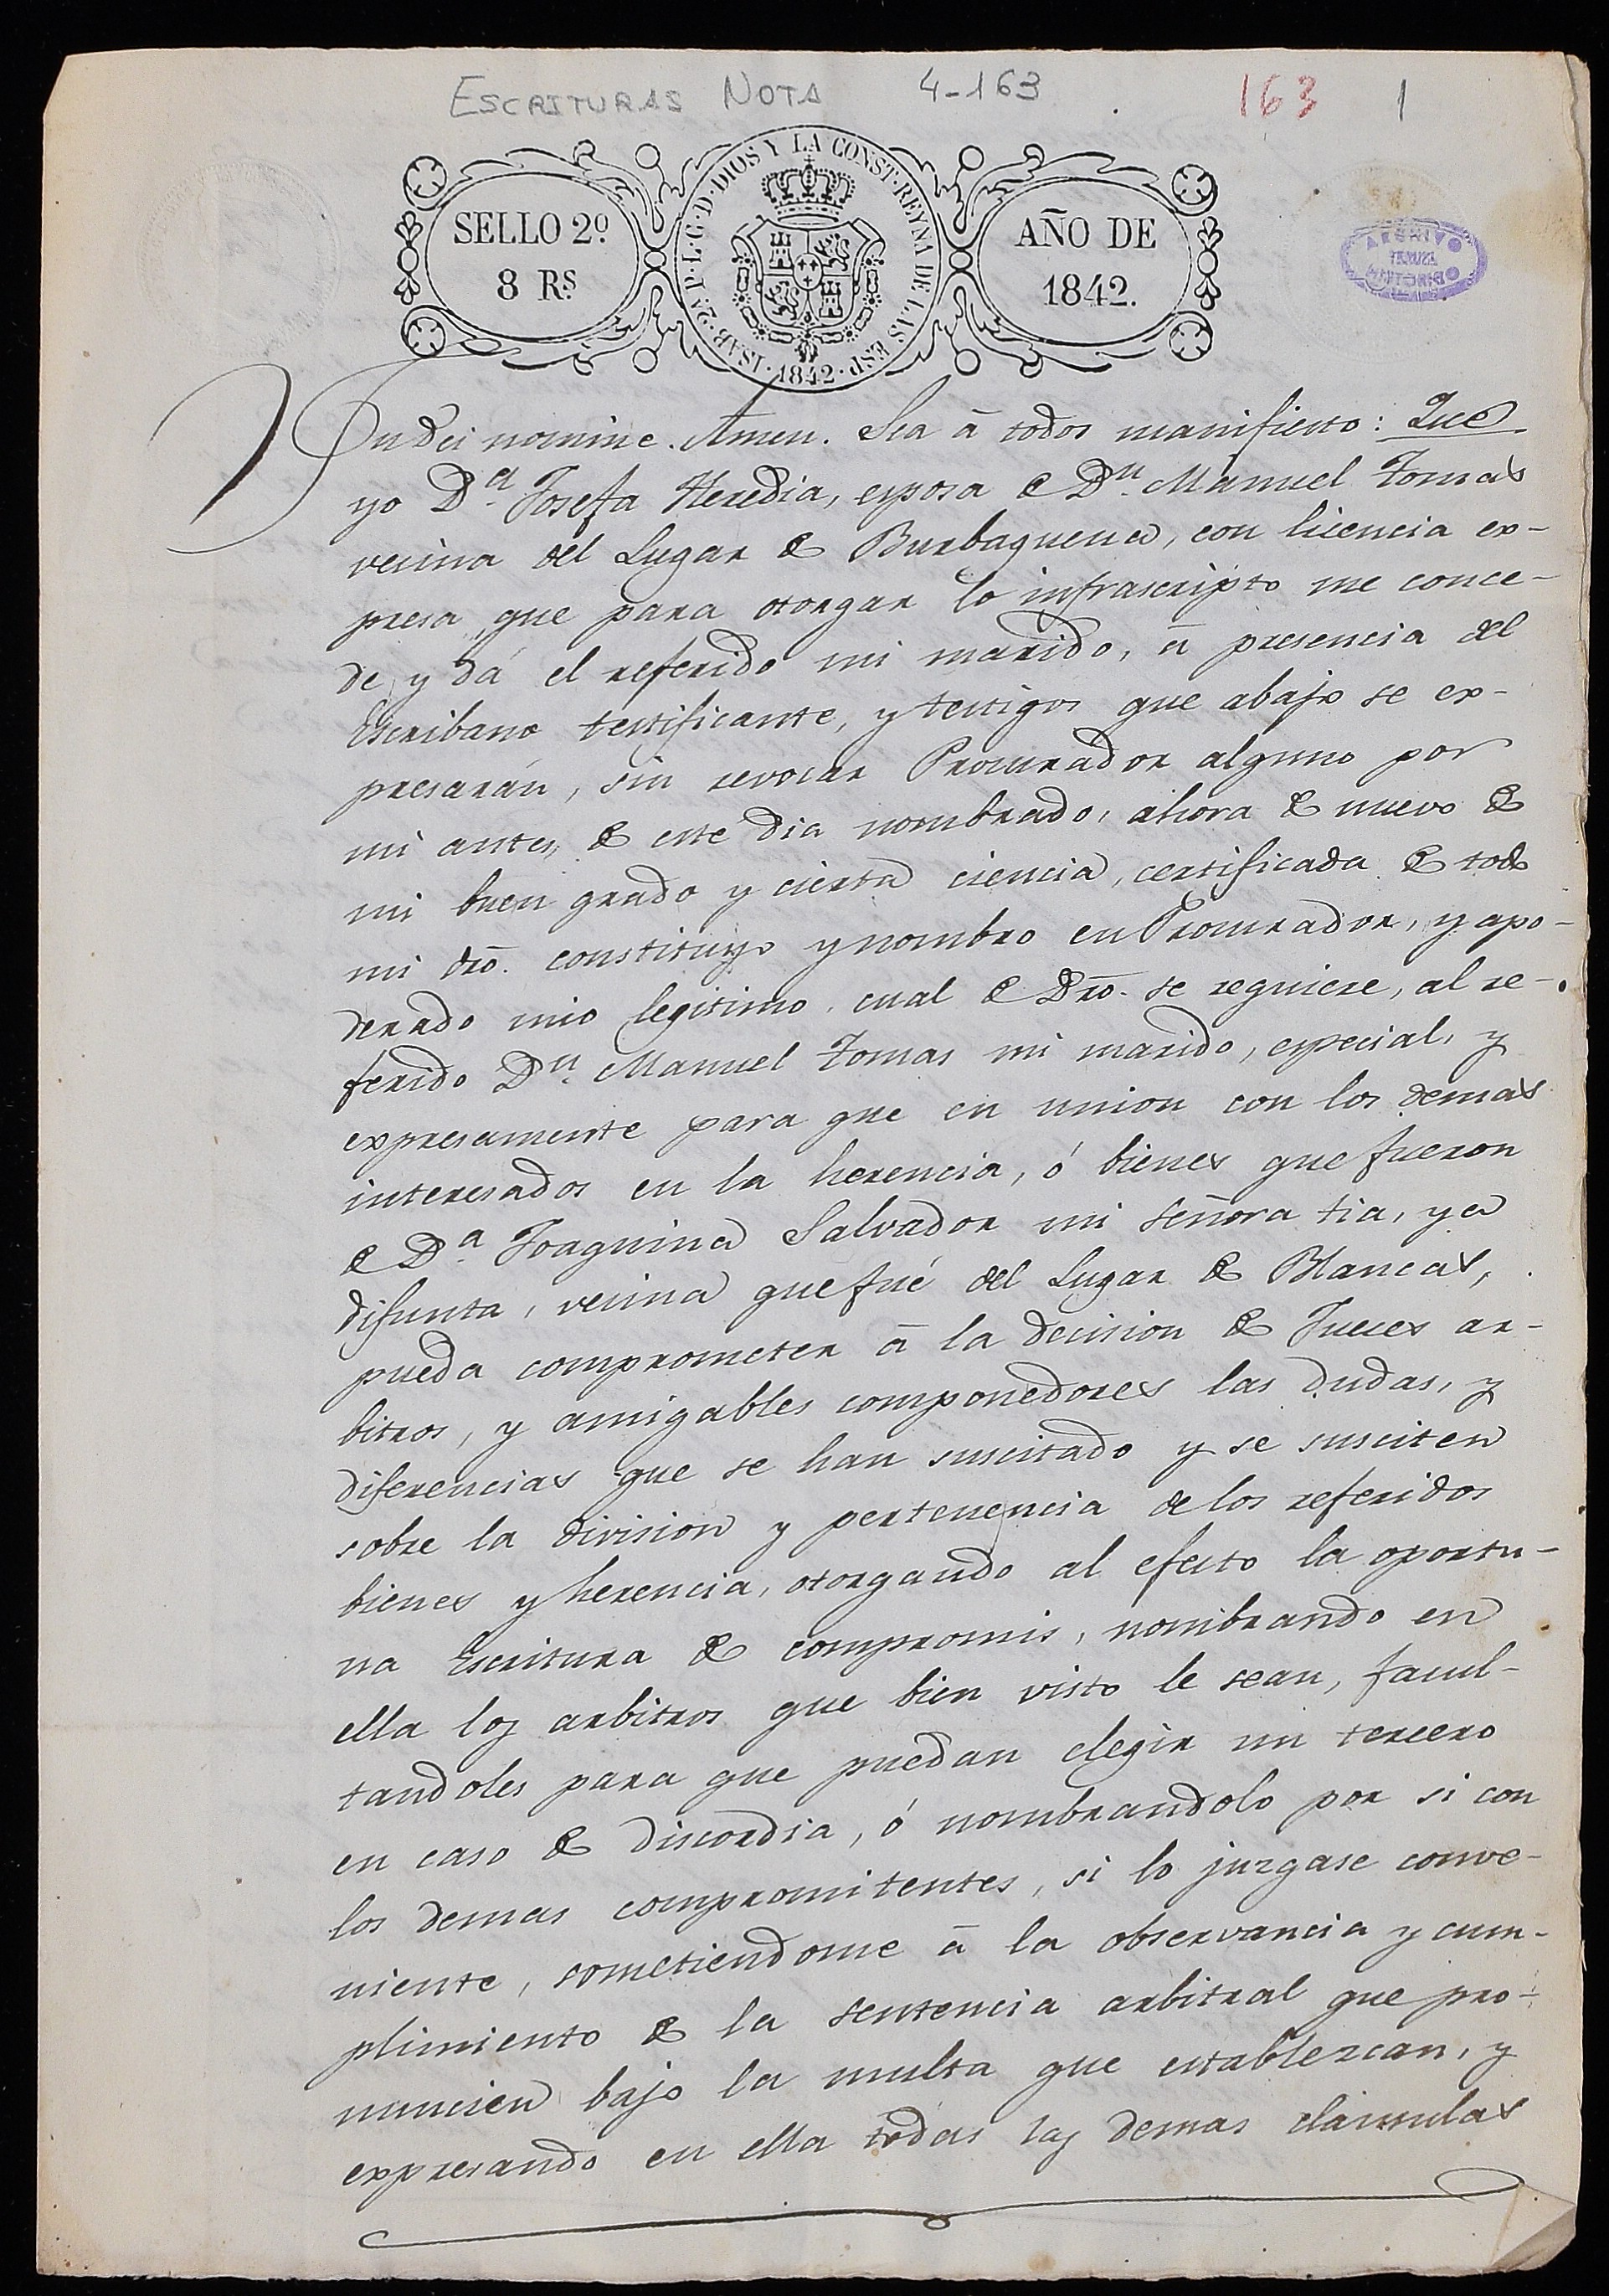 ESCRITURAS NOTA 4-163 163 1
SELLO 2º
8 RS
ISAB. 2ª P. L. G. D. DIOS Y LA CONST. REYNA DE LAS ESP. 1842
AÑO DE
1842.
ARCHIVO
TERUEL
In Dei nomine. Amen. Sea à todos manifiesto: Que
yo Dª Josefa Heredia, esposa de Dn. Manuel Tomas
vecina del Lugar de Burbaguena, con licencia ex-
presa que para otorgar lo infrascripto me conce-
de, y dá el referido mi marido, à presencia del
Escribano testificante, y testigos que abajo se ex-
presarán, sin revocar Procurador alguno por
mi antes de este dia nombrado, ahora de nuevo de
mi buen grado y cierta ciencia, certificada de todo
mi dro. constituyo y nombro en Procurador, y apo-
derado mio legitimo, cual de Dro. se requiere, al re-
ferido Dn. Manuel Tomas mi marido, especial, y
expresamente para que en union con los demas
interesados en la herencia, ó bienes que fueron
de Dª Joaquina Salvador mi señora tia, ya
difunta, vecina que fué del Lugar de Blancas,
pueda comprometer à la decision de Jueces ar-
bitros, y amigables componedores las dudas, y
diferencias que se han suscitado y se susciten
sobre la division y pertenencia de los referidos
bienes y herencia, otorgando al efecto la oportu-
na Escritura de compromis, nombrando en
ella los arbitros que bien visto le sean, facul-
tandoles para que puedan elegir un tercero
en caso de discordia, ó nombrandolo por si con
los demas compromitentes, si lo juzgase conve-
niente, sometiendome à la observancia y cum-
plimiento de la sentencia arbitral que pro-
nuncien bajo la multa que establezcan, y
expresando en ella todas las demas clausulas